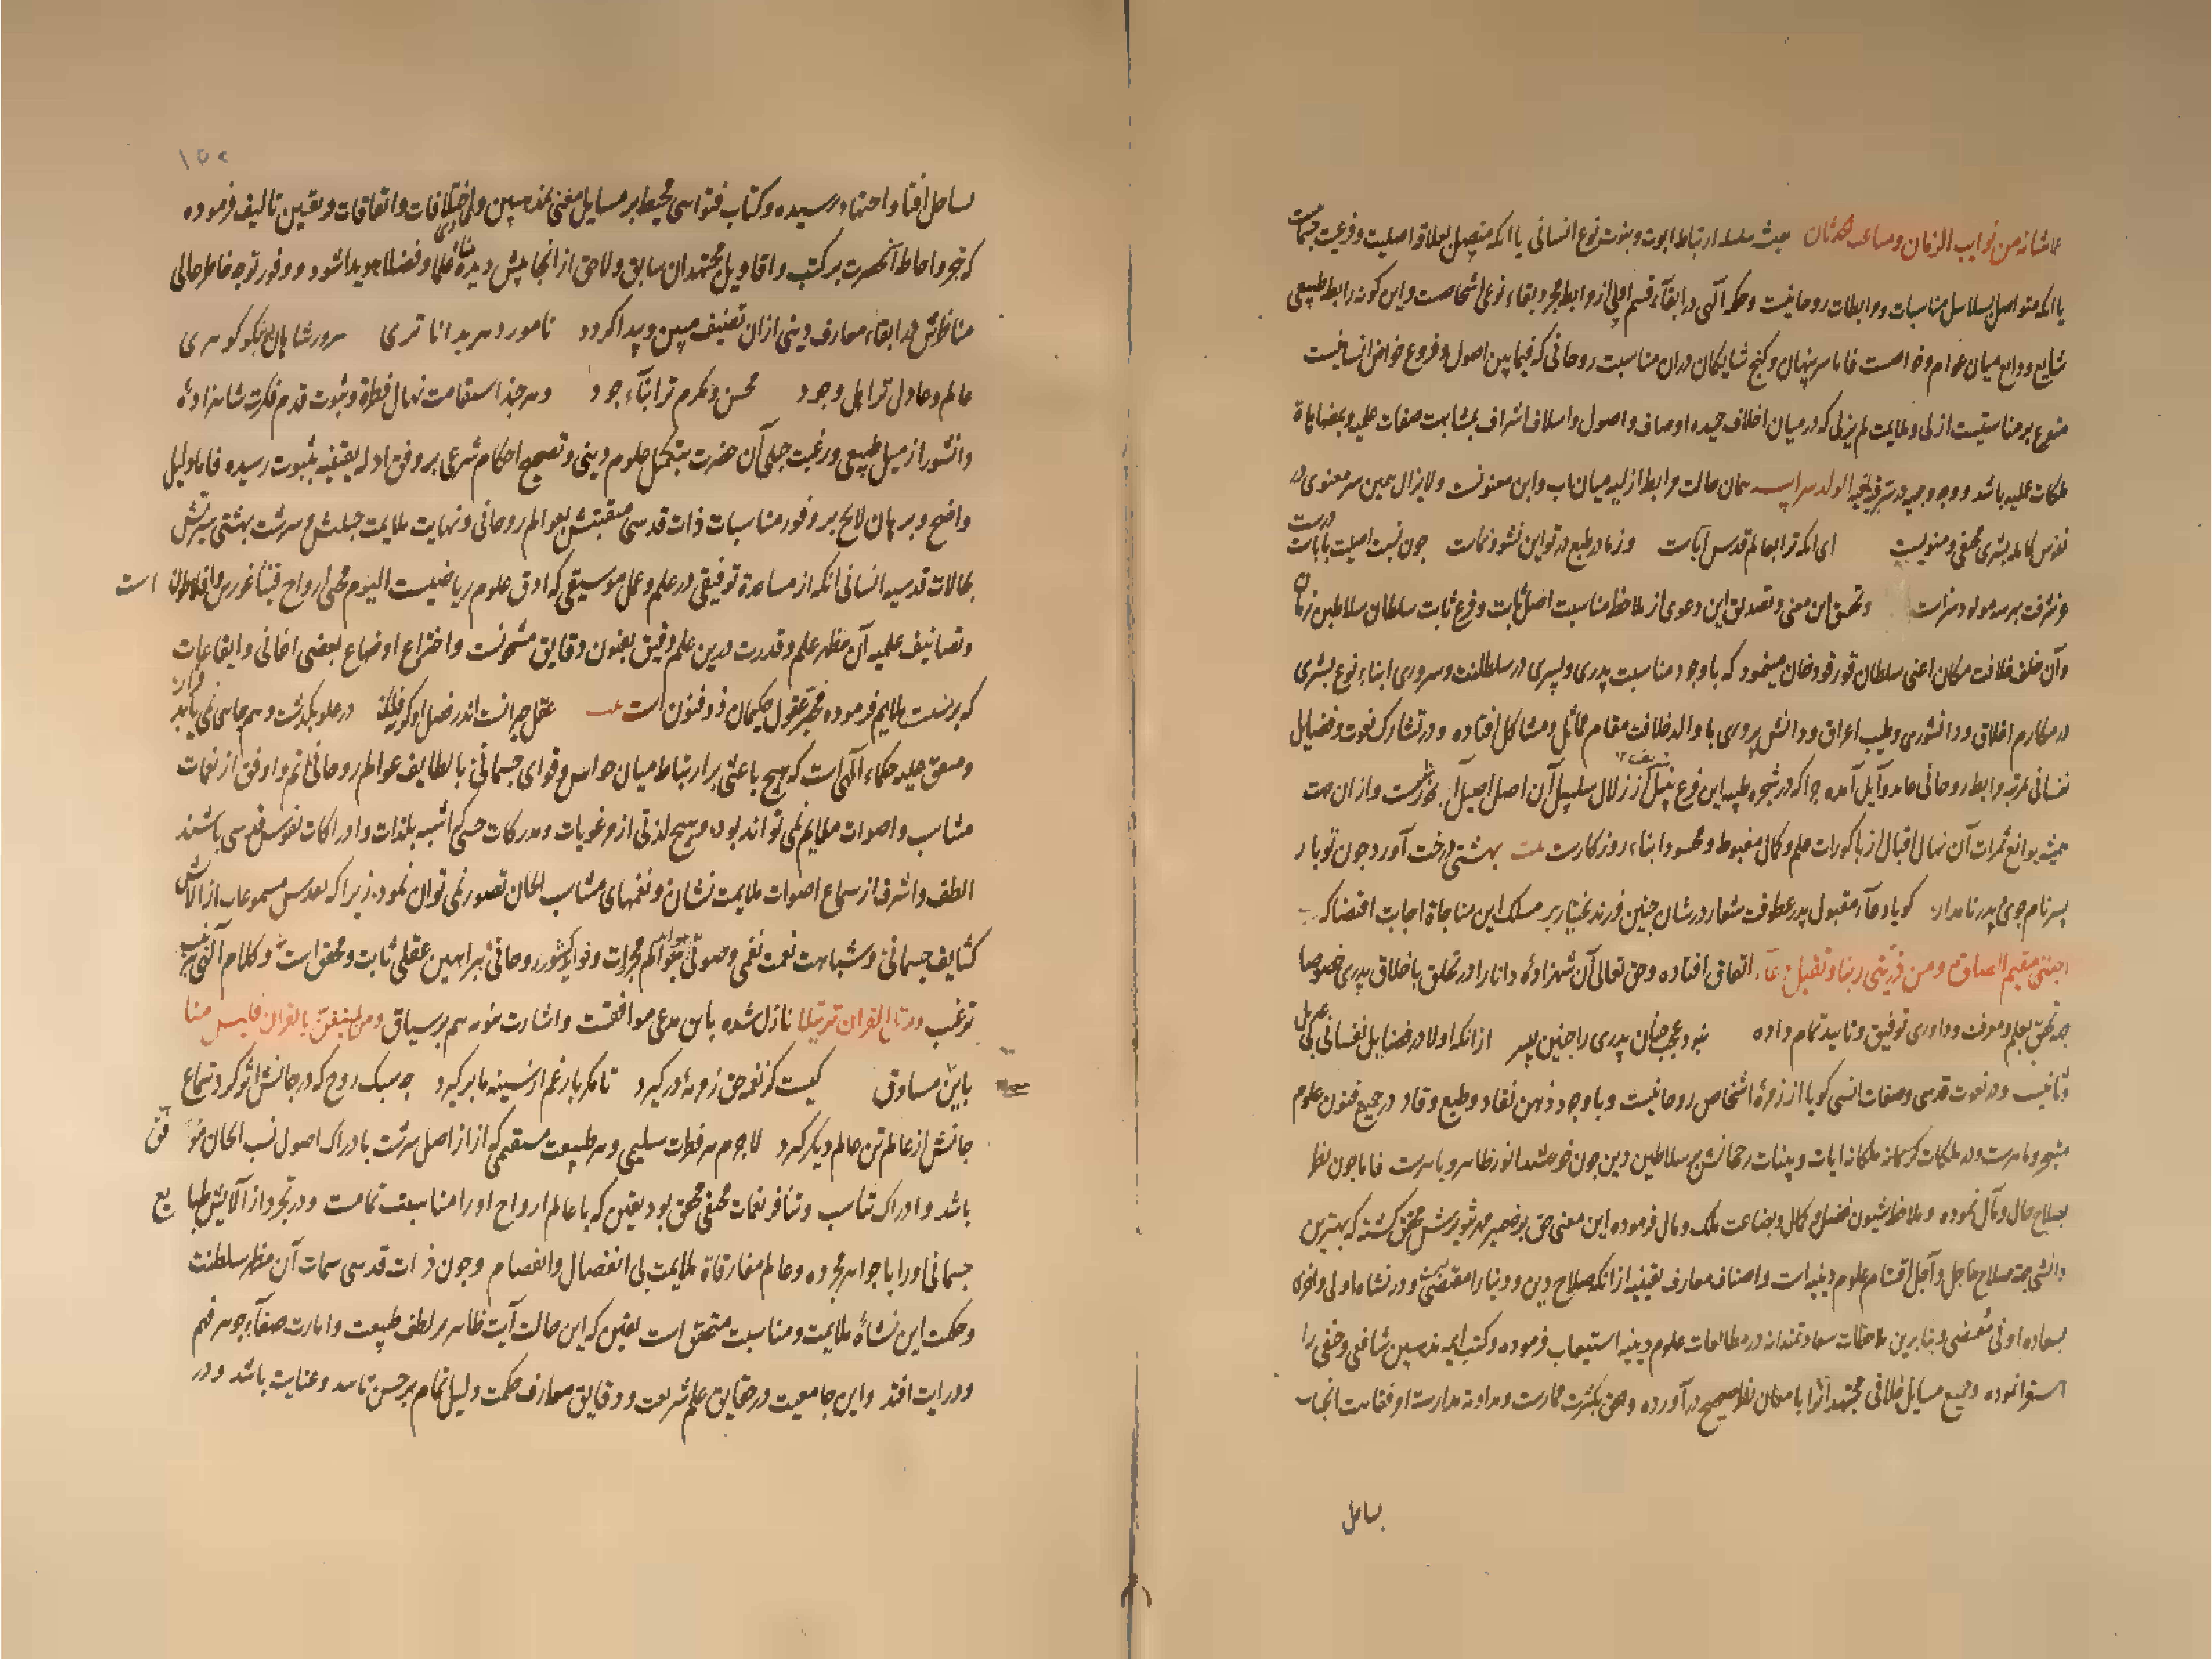 عاشانه من نوایب الزمان و مصاعب الحدثان حیث سلسله ارتباط ابوت و بنوت نوع انسانی یا آنکه متصل بعلاقه اصلیت و فرعیت جسمانیست
یا آنکه متواصل بسلاسل مناسبات و رابطات روحانیت و حکم آلهی در ابقاء قسم اول از روابط مجرد بقاء نوعی اشخاصت و این کونه رابطه طبیعی
شایع و ذایع میان عوام و خواصت فاما سر پنهان و کنج شایکان در آن مناسبت روحانی که فیما بین اصول و فروع خواص انسانیست
متنوع بر مناسبتیست ازلی و ملایمت لم یزلی که در میان اخلاف حمیده اوصاف و اصول و اسلاف اشراف بمشابهت صفات علمیه و
ملکات عملیه باشد و وجه وجیه در الولد سر ابیه همان حالت رابطه ازلیه میان اب و ابن معنونست و لا یزال همین سر معنوی در
نفوس کامله بشری مخفی و منویست ای آنکه ترا بعالم قدس اباست وز مادر طبع در تو این نشو و نماست چون نسبت اصلیت بابا درست
و شرف بر سه مولود سزاست و تحقق این معنی و تصدیق این دعوی از ملاحظه مناسبت اصل ثابت و فرع ثابت سلطان سلاطین زمان
و آن خلف خلافت مکان اعنی سلطان قورقود خان مینمود که با وجود مناسبت پدری و پسری در سلطنت و سروری ابناء نوع بشری
در مکارم اخلاق و دانشوری و طیب اعراق و دانش پروری با والد خلافت مقام متماثل و مشاکل افتاده و در تشارک نعوت و فضایل
نفسانی بمرتبه رابطه روحانی عاید و آیل آمده چرا که در شجره طیبه این فرع نبیل که از زلال سلسبیل آن اصل اصیل و از آن جهت
همیشه یوانع ثمرات آن نهال اقبال از باکورات علم و کمال مغبوط و محسود ابناء روزکارست بیت بهشتی درخت آورد چون تو بار
پسر نام جوی پدر نامدار کویا دعاء مقبول پدر عطوفت شعار در شان چنین فرزند بختیار بر مسلک این مناجاة اجابت اقتضا که رب
اجعلنی مقیم الصلوة و من ذریتی ربنا و تقبل دعاء اتفاق افتاده و حق تعالی آن شهزاده دانا را در تخلق باخلاق پدری خصوصا
جهة تحقق بعلم و معرفت و داوری توفیق و تایید تمام داده نبود عجب چنان پدری را چنین پسر از آنکه اولا در فضایل نفسانی
و در نعوت قدسی و صفات انسی کویا از زمره اشخاص روحانیست و با وجود ذهن نقاد و طبع وقاد در جمیع فنون علوم
متبحر و ماهرست و در ملکات کریمانه ملکانه آیات و بینات رحمانش سلاطین دین چون خورشید انور ظاهر و باهرست فاما چون نظر
بصلاح حال و مآل نموده و ملاحظه شیون فضل و کمال و بضاعت ملک و مال فرموده این معنی حق بر ضمیر مهر تنویرش محقق کشته که بهترین
دانشی جهة صلاح عاجل و آجل اقسام علوم دینیه است و اصناف معارف یقینیه از آنکه صلاح دین و دنیا را مقتضیست و در نشأه اولی و اخری
بسعاده اوفی مفضی و بنابرین ملاحظات سعادتمندانه در مطالعات علوم دینیه استیعاب فرموده و کتب ایمه مذهبین شافعی و حنفی را
استقرا نموده و جمیع مسایل خلافی مجتهدانرا بامعان نظر صحیح در آورده و حق بکثرت ممارست و مداومه مدارست او فقاهت انجاب
بساحل
۱۵۲
بساحل افتا و اجتهاد رسیده و کتاب فتواسی محیط بر مسایل مفتی بمذهبین و اختلافات و اتفاقات و تعیین تالیف فرموده
که تبحر و احاطه آنحضرت بر کتب و اقاویل مجتهدان سابق و لاحق از آنجا پیش دیده علما و فضلا هویدا شود و وفور توجه خاطر عالی
مناظرش در ابقاء معارف دینی از آن تصنیف مبین و پیدا کردد نامور دهر بدانا تری سرور شاهان بنیکو کوهری
عالم و عادل تر اهل وجود محسن و مکرم تر ابناء جود و هر چند استقامت نهال فطرة و ثبوت قدم فکرت شاهزاده
دانشور از میل طبیعی و رغبت جبلی آن حضرت بتکمیل علوم دینی و تصحیح احکام شرعی بر وفق ادله یقینیه بثبوت رسیده فاما دلیل
واضح و برهان لایح بر وفور مناسبات ذات قدسی منقبتش بعوالم روحانی و نهایت ملایمت جبلتش و سرشت بهشتی سیرتش
بکمالات قدسیه انسانی آنکه از مساعدة توفیقی در علم و عمل موسیقی که ادق علوم ریاضیست الیوم محیی ارواح فیثاغورس و افلاطون است
و تصانیف علمیه آن مظهر علم و قدرت درین علم دقیق بفنون دقایق مشحونست و اختراع اوضاع بعضی اغانی و ایقاعات
که بر نسبت ملایم فرموده محیر عقول حکیمان ذو فنون است بیت عقل حیرانست اندر فضل او کز فلک در علو بکذشت و هم جاهی نمی یابد
و متفق علیه حکماء آلهی است که هیچ باعثی بر ارتباط میان حواس و قوای جسمانی با لطایف عوالم روحانی اتم و اوفق از نغمات
متناسب و اصوات ملایم نمی تواند بود و هیچ لذتی از مرغوبات و مدرکات حسی که اشبه بلذات و ادراکات نفوس قدسی باشند
الطف و اشرف از سماع اصوات ملایمت نشان و نغمهای متناسب الحان تصور نمی توان نمود زیرا که تقدس مسموعات از آلایش
کثایف جسمانی و مشابهت نعمت نغمی و صوتی بعوالم مجردات و فواید کشور روحانی ببراهین عقلی ثابت و محقق است و کلام آلهی که در
ترغیب و رتل القران ترتیلا نازل شده باین مدعی موافقست و اشارت نبویه هم بر سیاق و من لم یتغن بالقران فلیس منا
باین مساوق کیست کز نغمه حق زمزمه در کیرد تا مکر بار غم از سینه ما بر کیرد چه سبک روح که در جانش اثر کرد سماع
جانش از عالم تن عالم دیکر کیرد لا جرم هر فطرت سلیمی و هر طبیعت مستقیمی که از اصل سرشت بادراک اصول نسب الحان موافق
باشد و ادراک تناسب و تنافر نغمات مخفی محقق بود یقین که با عالم ارواح او را مناسبتیست تمامست و در تجرد از آلایش طبایع
جسمانی او را با جواهر مجرده و عالم مفارقاة ملایمت بی انفصال و انفصام و چون ذات قدسی سمات آن مظهر سلطنت
و حکمت این نشأه ملایمت و مناسبت متحقق است یقین که این حالت آیت ظاهر بر لطف طبیعت و امارت صفاء جوهر فهم
و درایت افتد و این جامعیت در حقایق علم شریعت و دقایق معارف حکمت دلیل تمام بر حسن تایید و عنایت باشد و در